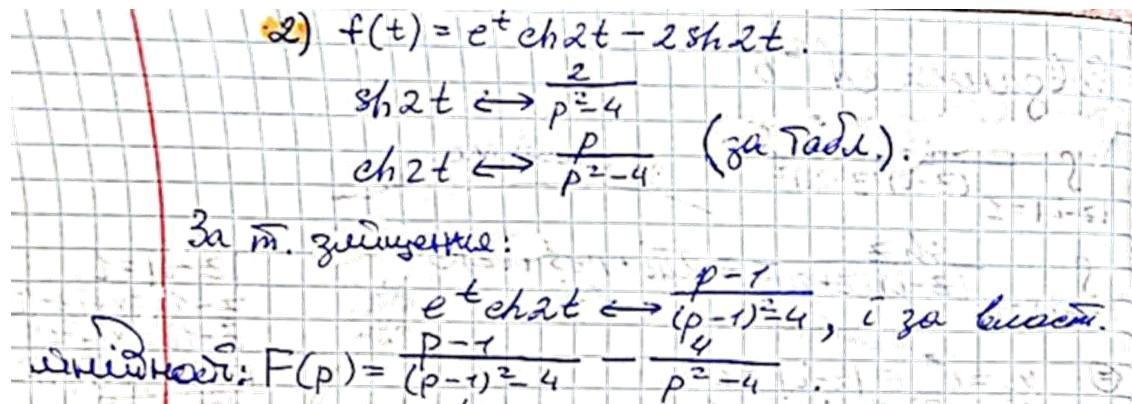 2) f(t) = e^t ch2t - 2 sh2t.
sh2t ↔ 2/(p²-4)
ch2t ↔ p/(p²-4) (за табл.).
За т. зміщення:
e^t ch2t ↔ (p-1)/((p-1)²-4), і за власт.
лінійност.: F(p) = (p-1)/((p-1)²-4) - 4/(p²-4).